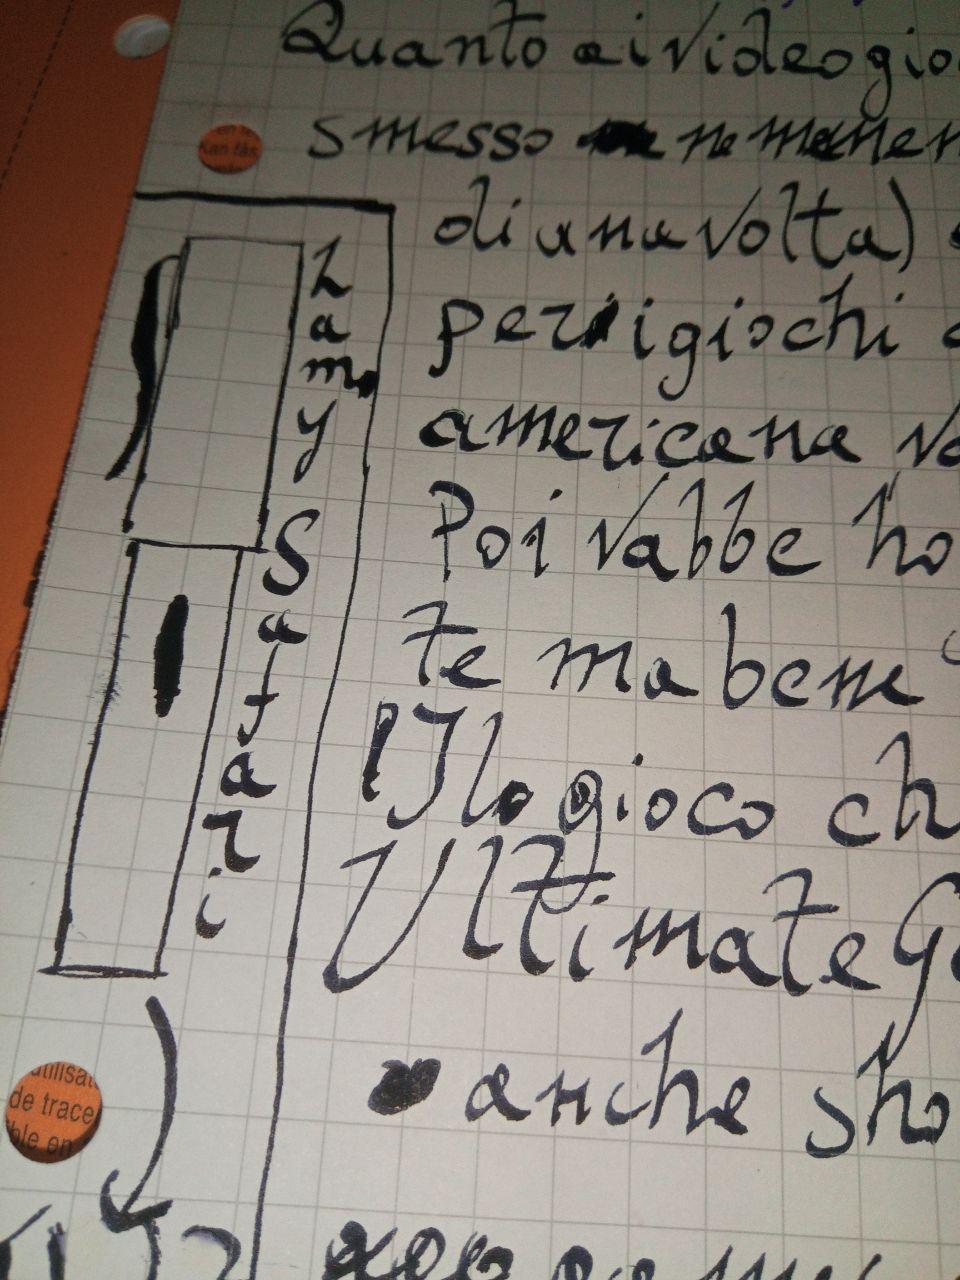 Quanto ai videogio
smesso ne
di una volta)
per i giochi
americana
Poi vabbe ho
te ma bene
Il gioco ch
Ultimate G
anche sho
Lamy
Safari
en
Kan fås
utilisat
de trace
ble en